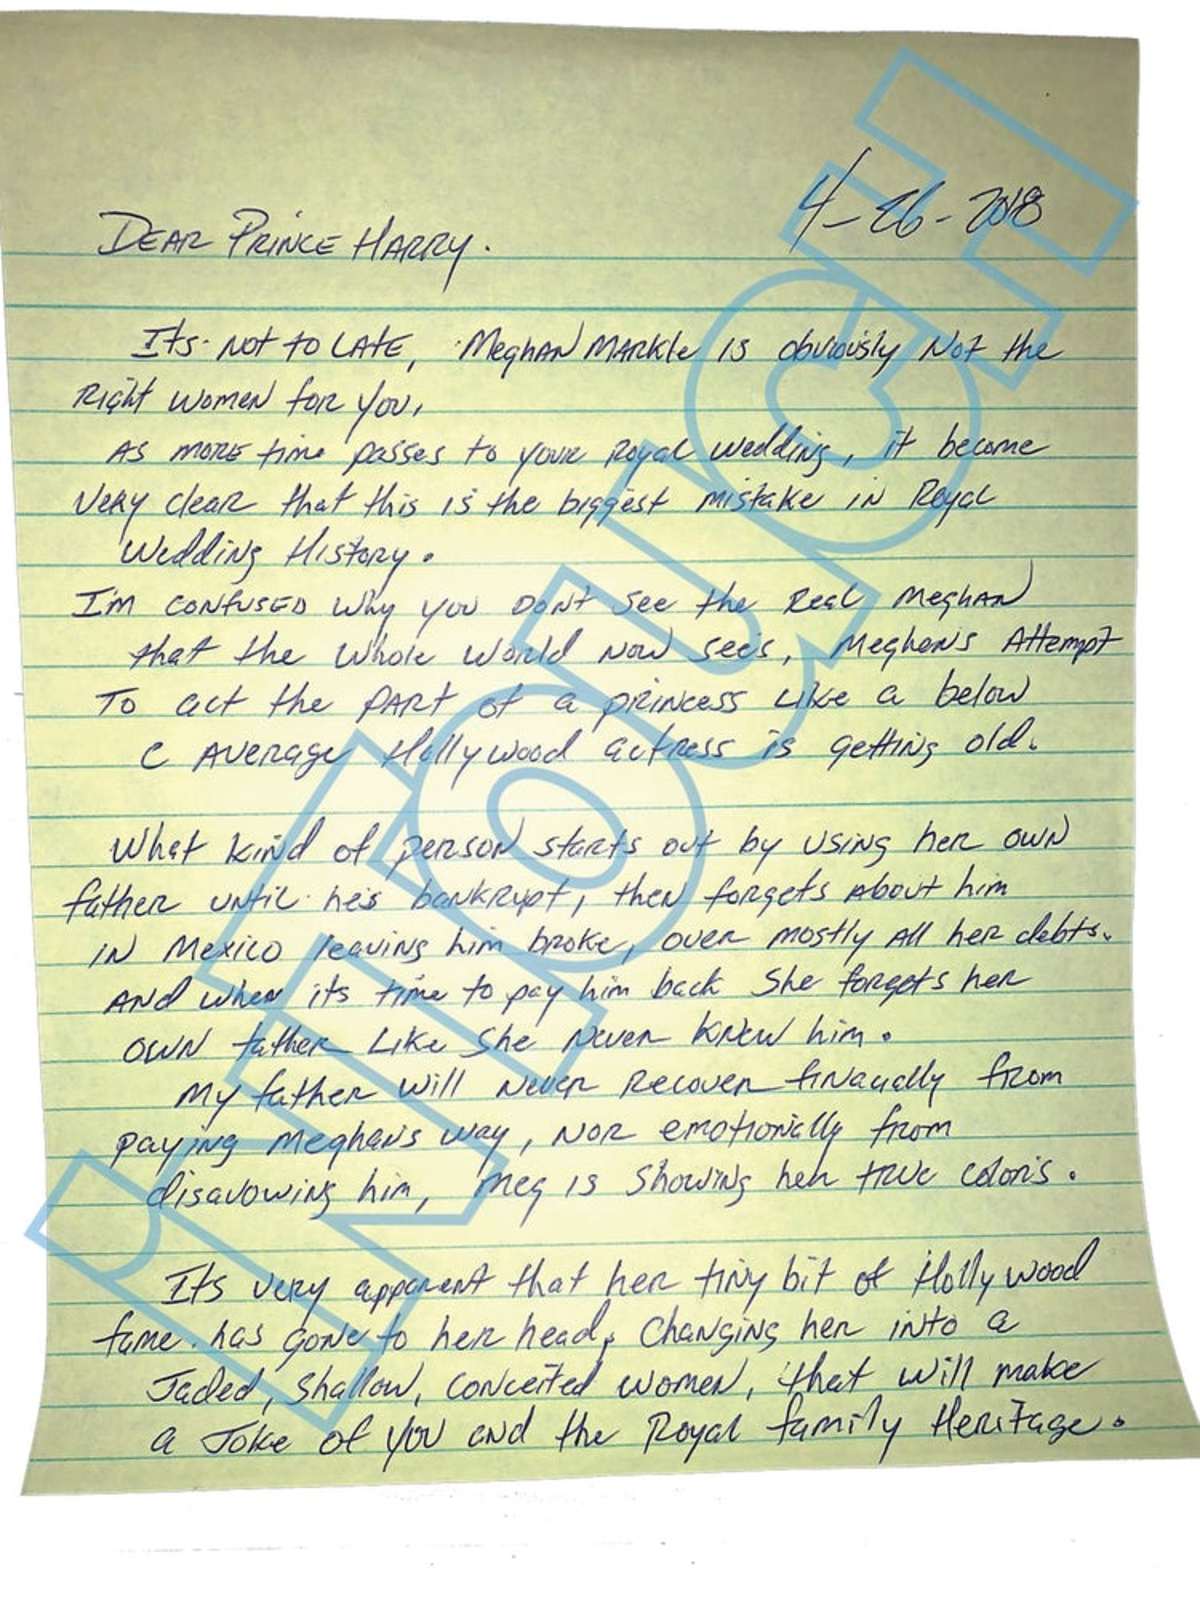 4-26-2018
DEAR PRINCE HARRY.
Its NOT TO LATE, MeghAN MARKle is obviously Not the
Right Women for you,
As MORE time passes to your Royal Wedding, it become
Very clear that this is the biggest mistake in Royal
Wedding History.
I'm CONFUSED Why you DON't See the Real MeghAN
that the Whole World NOW see's, Meghan's Attempt
To act the PART of a princess Like a below
C AVERAge Hollywood actress is getting old.
What kind of person starts out by Using her OWN
father UNtil he's bankrupt, then forgets About him
IN Mexico leaving him broke, over mostly All her debts.
ANd when its time to pay him back She forgets her
OWN father Like She Never KNEW him.
My father Will Never Recover finacially from
paying Meghan's way, NOR emotionally from
disavowing him, Meg is Showing her TRUE colors.
It's very apparent that her tiny bit of Hollywood
fame has gone to her head, Changing her into a
Jaded, Shallow, Conceited women, that will make
a Joke of you and the Royal family Heritage.
INTOUCH